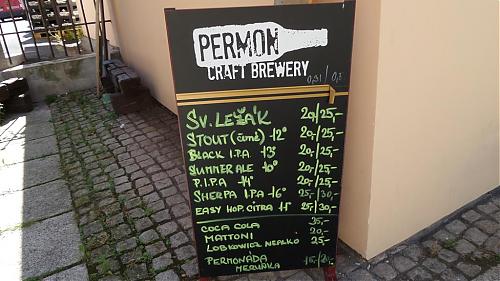 PERMON
CRAFT BREWERY
0,3l / 0,5
SV. LEŽÁK 20,-/25,-
STOUT (černé) 12° 20,-/25,-
BLACK I.P.A 13° 20,-/25,-
SUMMER ALE 10° 20,-/25,-
P.I.P.A 14° 20,-/25,-
SHERPA I.P.A 16° 25,-/30,-
EASY HOP. CITRA 11° 25,-/30,-
COCA COLA 35,-
MATTONI 20,-
LOBKOWICZ NEALKO 25,-
PERMONÁDA 15,-/20,-
MERUŇKA